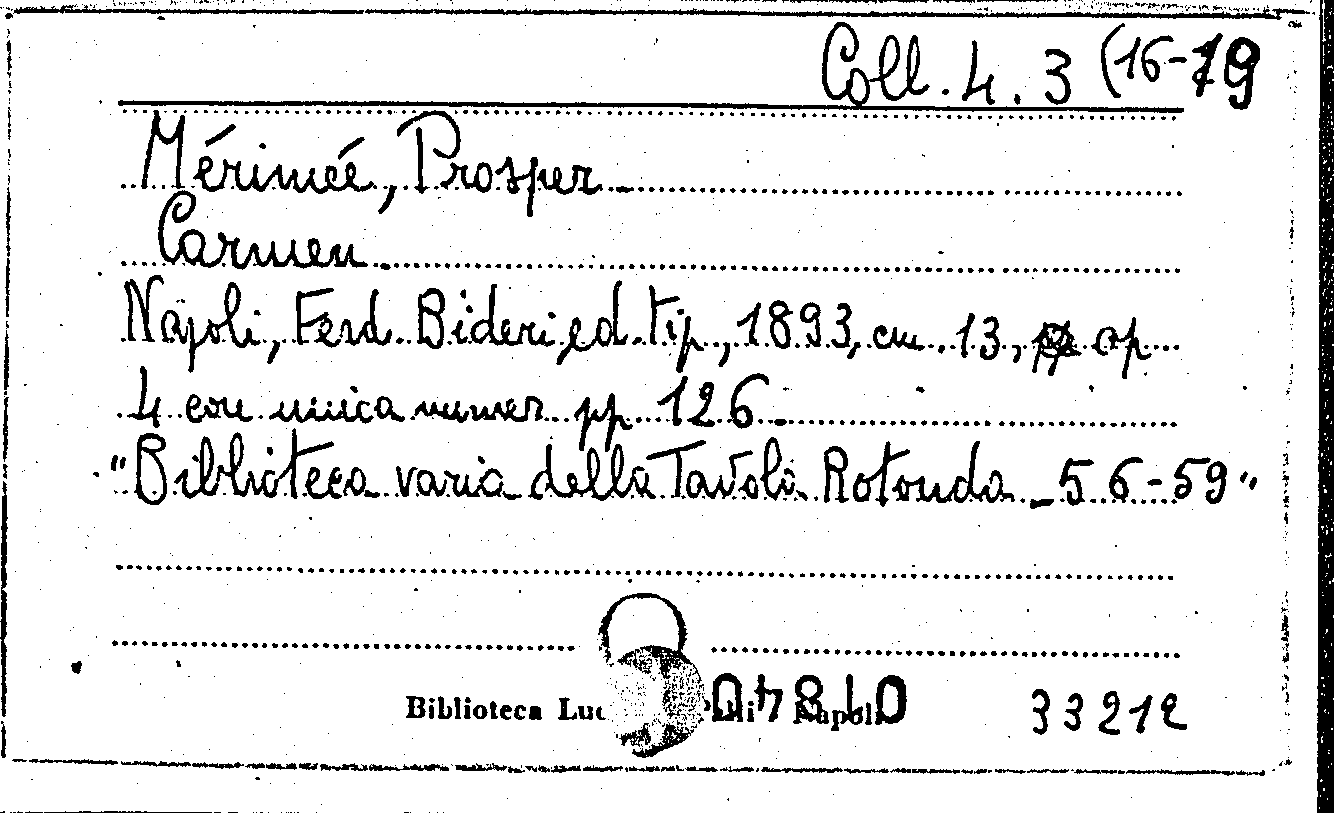 Coll. 4. 3 (16-19
Mérimée, Prosper
Carmen
Napoli, Ferd. Bideri, ed. tip, 1893, cm. 13, op
4 con unica numer pp 126.
"Biblioteca varia della Tavola Rotonda - 56-59"
Biblioteca
33212